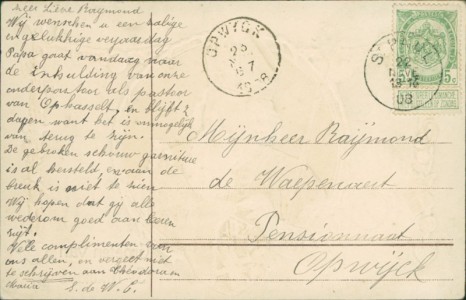 Zeer Lieve Raymond
Wij wenschen u een zalige
en gelukkige verjaardag
Papa gaat vandaag naar
de inhulding van onze
onderpastor als pastor
van Ophasselt, en blijft 2
dagen want het is onmogelijk
van terug te zijn.
De gebroken schouw garnituur
is al hersteld, en van de
breuk is niet te zien
Wij hopen dat gij alle
wederom goed aan leeren
zijt.
Vele complimenten van
ons allen, en vergeet niet
te schrijven aan Theodoor en
S. de W. C.
OPWYCK
23
8-9
Mijnheer Raijmond
de Waepenaert
Pensionnaat
Opwijck
22
08
5c